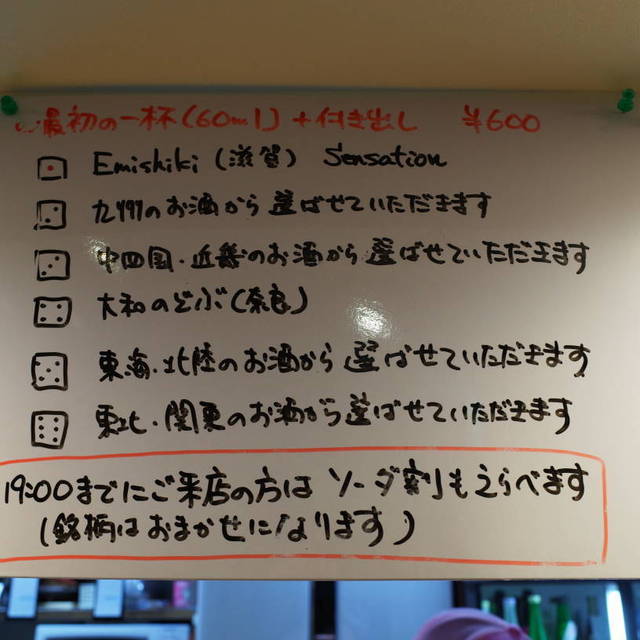 最初の一杯(60ml)+付き出し ¥600
Emishiki(滋賀) Sensation
九州のお酒から選ばせていただきます
中四国・近畿のお酒から選ばせていただきます
大和のどぶ(奈良)
東海・北陸のお酒から選ばせていただきます
東北・関東のお酒から選ばせていただきます
19:00までにご来店の方はソーダ割もえらべます
(銘柄はおまかせになります)